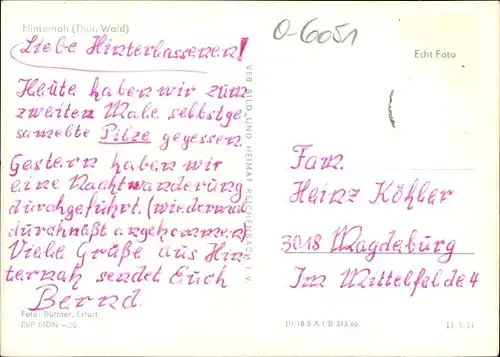 Hinternah (Thür. Wald)
Liebe Hinterlassenen!
Heute haben wir zum
zweiten Male selbstge
samelte Pilze gegessen.
Gestern haben wir
eine Nachtwanderung
durchgeführt. (wiedermal
durchnäßt angekommen)
Viele Grüße aus Hin
ternah sendet Euch
Bernd.
Foto: Büttner, Erfurt
EVP MDN -,20
VEB BILD UND HEIMAT REICHENBACH I. V.
O-6051
Echt Foto
Fam.
Heinz Köhler
3018 Magdeburg
Im Mittelfelde 4
III/18/6 A 1 B 343/66